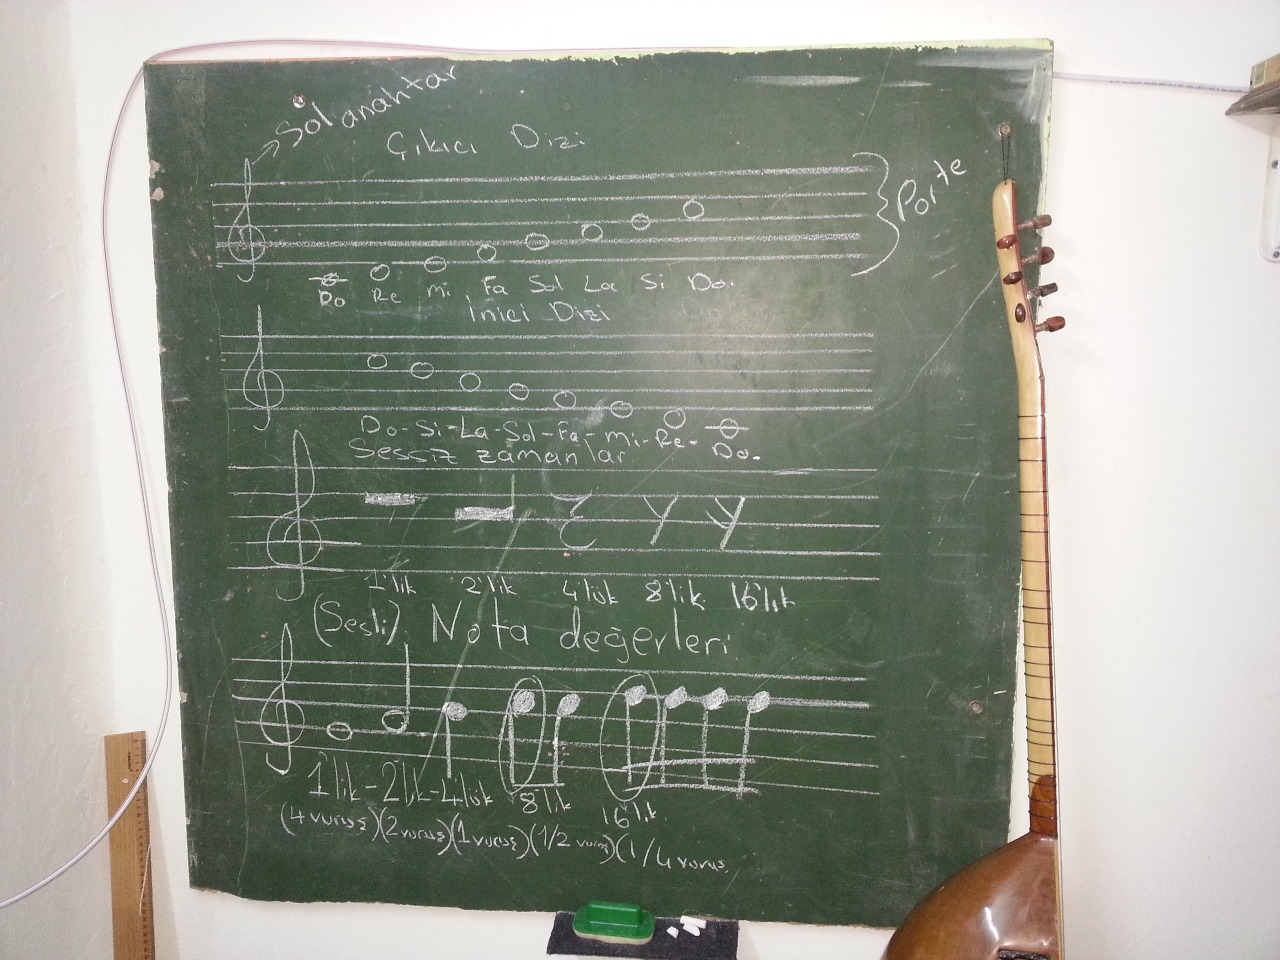 Sol anahtar
Çıkıcı Dizi
Porte
Do Re mi Fa Sol La Si Do.
İnici Dizi
Do-Si-La-Sol-Fa-mi-Re-Do.
Sessiz zamanlar
1'lik 2'lik 4'lük 8'lik 16'lık
(Sesli) Nota değerleri
1'lik-2'lik-4'lük 8'lik 16'lık
(4 vuruş)(2 vuruş)(1 vuruş)(1/2 vuruş)(1/4 vuruş